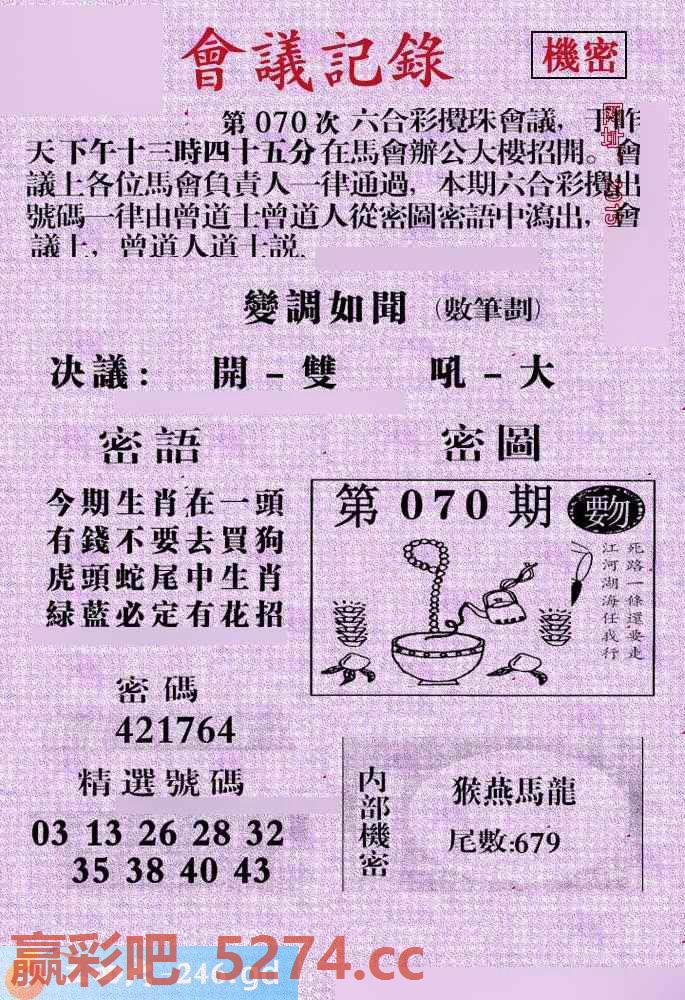 會議記錄
機密
第070次 六合彩攪珠會議，于昨
天下午十三時四十五分在馬會辦公大樓招開。會
議上各位馬會負責人一律通過，本期六合彩攪出
號碼一律由曾道士曾道人從密圖密語中瀉出，會
議上，曾道人道士説，
變調如聞（數筆劃）
决議： 開－雙 吼－大
密語
今期生肖在一頭
有錢不要去買狗
虎頭蛇尾中生肖
緑藍必定有花招
密圖
第070期
死路一條還要走
江河湖海任我行
密碼
421764
精選號碼
03 13 26 28 32
35 38 40 43
内部機密
猴燕馬龍
尾數:679
赢彩吧 5274.cc
246.gd